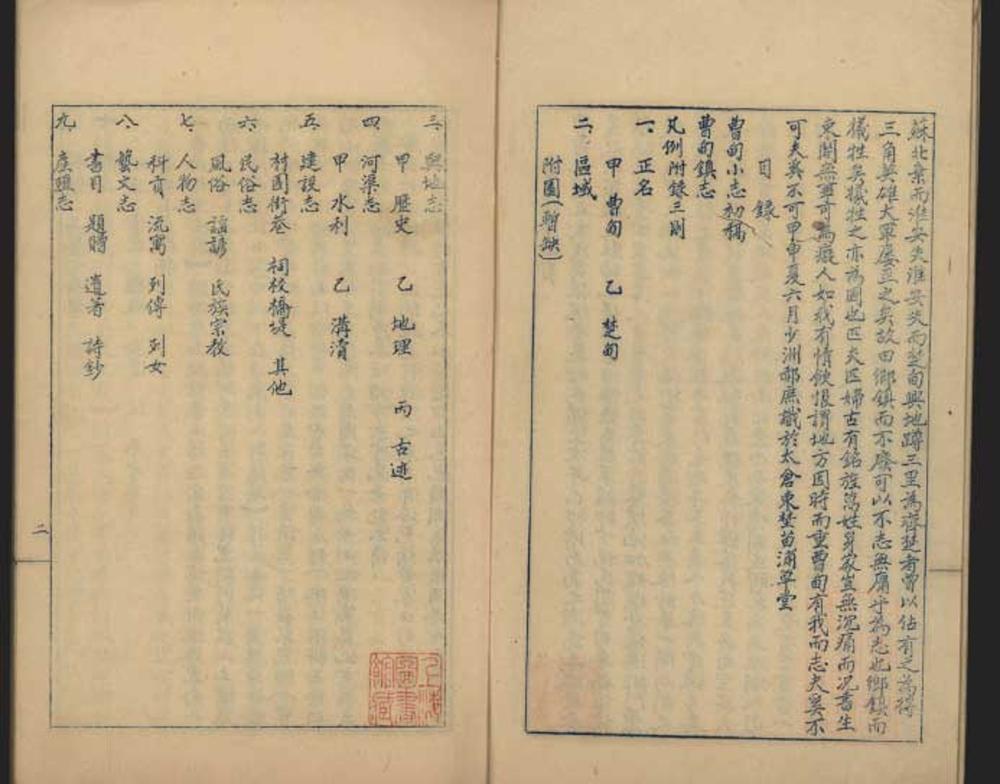 蘇北棄而淮安失淮安失而楚甸與地蹲三里為齊楚者曾以佔有之為得
三角英雄大軍屢至之矣故田鄉鎮而不廢可以不志無庸乎為志也鄉鎮而
犧牲矣犧牲之亦為國也匹夫匹婦古有銘旌萬姓身家豈無沉痛而况書生
東閣無事可為癡人如我有情飲恨謂地方因時而重曹甸有我而志夫奚不
可夫奚不可甲申夏六月少洲郝庶識於太倉東楚苗浦草堂
目錄
曹甸小志初稿
曹甸鎮志
凡例附錄三則
一、正名
甲 曹甸 乙 楚甸
二、區域
附圖(暫缺)
三、輿地志
甲 歷史 乙 地理 丙 古迹
四、河渠志
甲 水利 乙 溝瀆
五、建設志
村圩街巷 祠校橋堤 其他
六、民俗志
風俗 謠諺 氏族宗教
七、人物志
科貢 流寓 列傳 列女
八、藝文志
書目 題贈 遺著 詩鈔
九、產殖志
二
上海圖書館藏